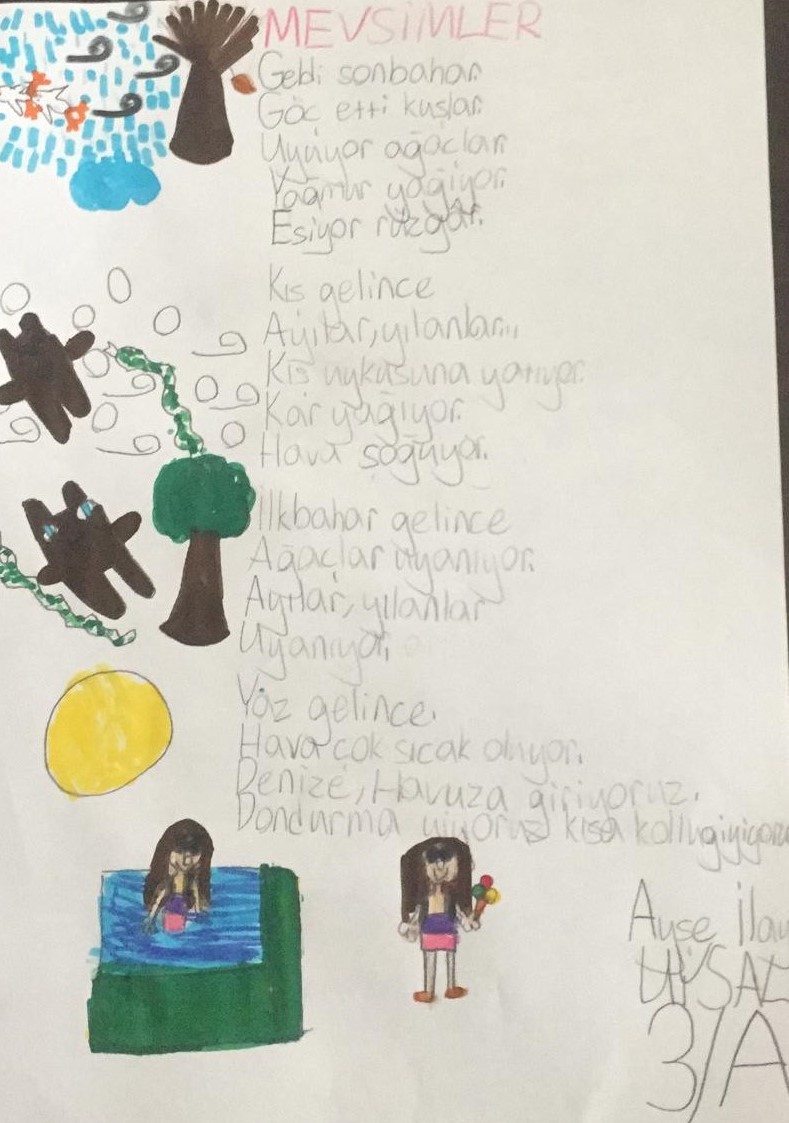 MEVSİMLER
Geldi sonbahar.
Göç etti kuşlar.
Uyuyor ağaçlar
Yağmur yağıyor.
Esiyor rüzgar.
Kıs gelince
Ayılar, yılanlar...
Kış uykusuna yatıyor.
Kar yağıyor.
Hava soğuyor.
İlkbahar gelince
Ağaçlar uyanıyor.
Ayılar, yılanlar
Uyanıyor.
Yaz gelince.
Hava çok sıcak oluyor.
Denize, Havuza giriyoruz.
Dondurma yiyoruz kısa kollu giyiyoru
Ayşe İla
UYSAL
3/A